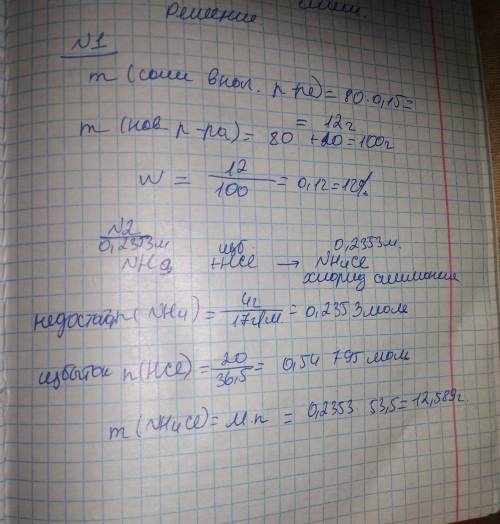 Решение
N1
m (соли в пол. р-ре) = 80·0,15 =
= 12 г
m (нов р-ра) = 80 + 20 = 100 г
W = 12/100 = 0,12 = 12%
N2
0,2353 м изб 0,2353 м.
NH3 + HCl → NH4Cl
хлорид аммония
недостаток n (NH4) = 4г/17г/м = 0,2353 моль
избыток n (HCl) = 20/36,5 = 0,54795 моль
m (NH4Cl) = M·n = 0,2353·53,5 = 12,589 г.